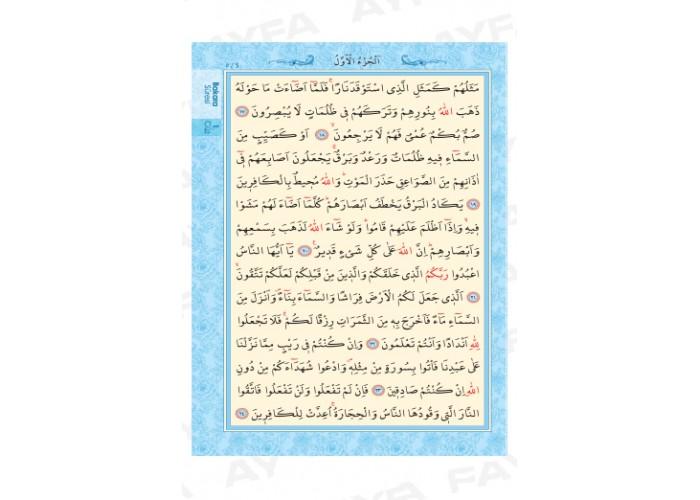 AYFA
اَلْجُزْءُ الْاَوَّلُ
Bakara
Sûresi
1.
Cüz
مَثَلُهُمْ كَمَثَلِ الَّذِي اسْتَوْقَدَ نَارًاۚ فَلَمَّٓا اَضَٓاءَتْ مَا حَوْلَهُ
ذَهَبَ اللّٰهُ بِنُورِهِمْ وَتَرَكَهُمْ فٖي ظُلُمَاتٍ لَا يُبْصِرُونَ ﴿١٧﴾
صُمٌّ بُكْمٌ عُمْيٌ فَهُمْ لَا يَرْجِعُونَۙ ﴿١٨﴾ اَوْ كَصَيِّبٍ مِنَ
السَّمَٓاءِ فٖيهِ ظُلُمَاتٌ وَرَعْدٌ وَبَرْقٌۚ يَجْعَلُونَ اَصَابِعَهُمْ فٖٓي
اٰذَانِهِمْ مِنَ الصَّوَاعِقِ حَذَرَ الْمَوْتِؕ وَاللّٰهُ مُحٖيطٌ بِالْكَافِرٖينَ
﴿١٩﴾ يَكَادُ الْبَرْقُ يَخْطَفُ اَبْصَارَهُمْؕ كُلَّمَٓا اَضَٓاءَ لَهُمْ مَشَوْا
فٖيهِۙ وَاِذَٓا اَظْلَمَ عَلَيْهِمْ قَامُواؕ وَلَوْ شَٓاءَ اللّٰهُ لَذَهَبَ بِسَمْعِهِمْ
وَاَبْصَارِهِمْؕ اِنَّ اللّٰهَ عَلٰى كُلِّ شَيْءٍ قَدٖيرٌࣖ ﴿٢٠﴾ يَٓا اَيُّهَا النَّاسُ
اعْبُدُوا رَبَّكُمُ الَّذٖي خَلَقَكُمْ وَالَّذٖينَ مِنْ قَبْلِكُمْ لَعَلَّكُمْ تَتَّقُونَۙ
﴿٢١﴾ اَلَّذٖي جَعَلَ لَكُمُ الْاَرْضَ فِرَاشًا وَالسَّمَٓاءَ بِنَٓاءًࣕ وَاَنْزَلَ مِنَ
السَّمَٓاءِ مَٓاءً فَاَخْرَجَ بِهٖ مِنَ الثَّمَرَاتِ رِزْقًا لَكُمْۚ فَلَا تَجْعَلُوا
لِلّٰهِ اَنْدَادًا وَاَنْتُمْ تَعْلَمُونَ ﴿٢٢﴾ وَاِنْ كُنْتُمْ فٖي رَيْبٍ مِمَّا نَزَّلْنَا
عَلٰى عَبْدِنَا فَأْتُوا بِسُورَةٍ مِنْ مِثْلِهٖࣕ وَادْعُوا شُهَدَٓاءَكُمْ مِنْ دُونِ
اللّٰهِ اِنْ كُنْتُمْ صَادِقٖينَ ﴿٢٣﴾ فَاِنْ لَمْ تَفْعَلُوا وَلَنْ تَفْعَلُوا فَاتَّقُوا
النَّارَ الَّتٖي وَقُودُهَا النَّاسُ وَالْحِجَارَةُۚ اُعِدَّتْ لِلْكَافِرٖينَ ﴿٢٤﴾